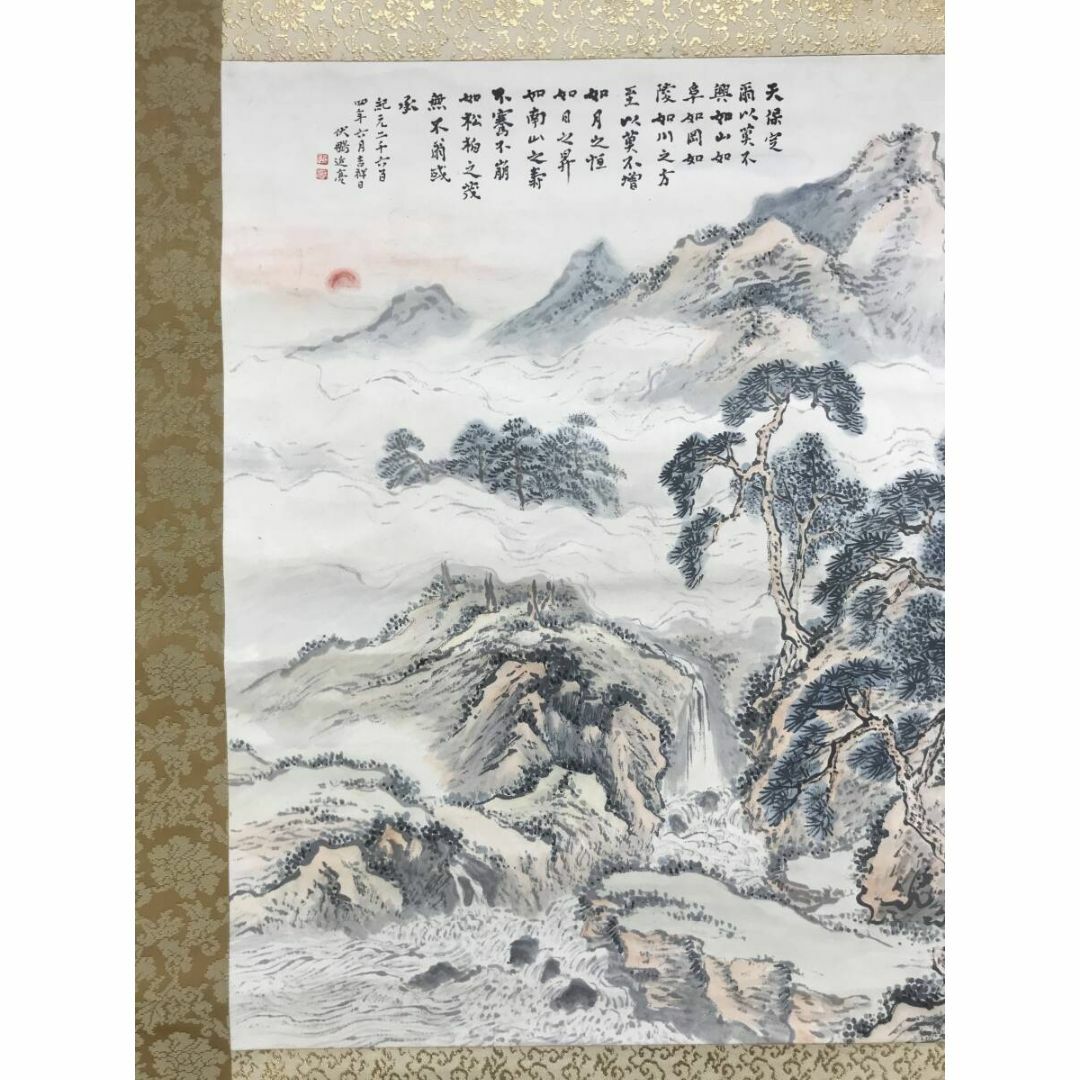 天保定
爾以莫不
興如山如
阜如岡如
陵如川之方
至以莫不增
如月之恒
如日之昇
如南山之壽
不騫不崩
如松柏之茂
無不爾或
承
紀元二千六百
四年六月吉祥日